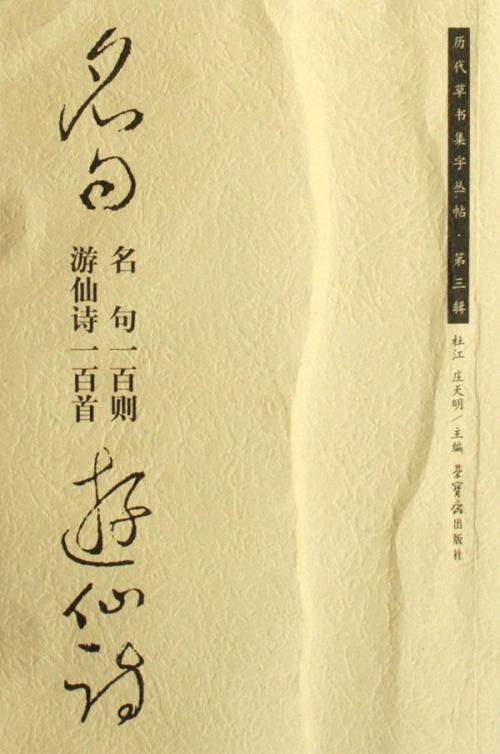 历代草书集字丛帖·第三辑
杜江 庄天明／主编 荣宝斋出版社
名句
名句一百则
游仙诗一百首
遊仙詩